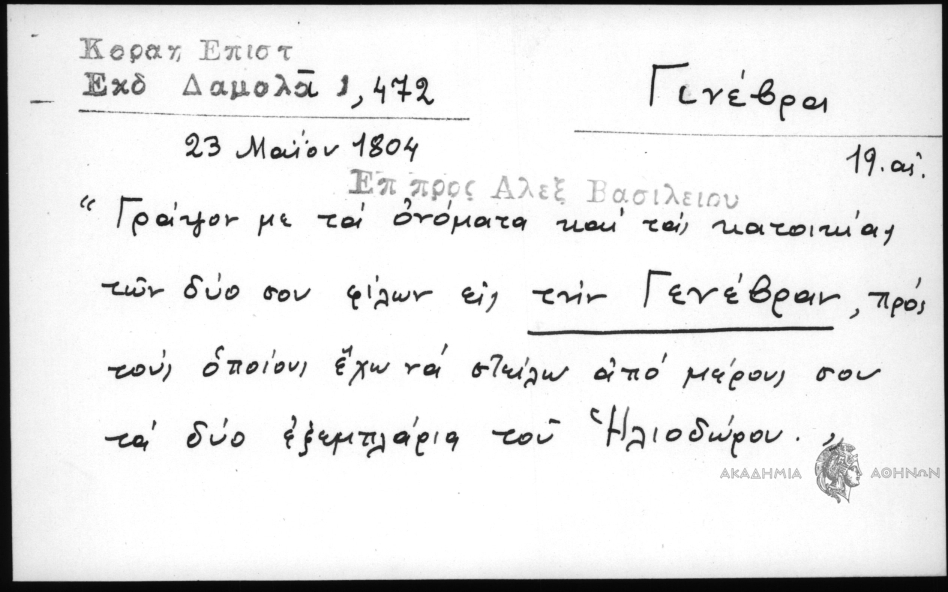 Κοραη Επιστ
Εκδ Δαμαλᾶ 1, 472
Γενέβρα
23 Μαΐου 1804
19. αἰ.
Επ προς Αλεξ Βασιλειου
“Γράψον με τὰ ὀνόματα καὶ τὰς κατοικίας
τῶν δύο σου φίλων εἰς τὴν Γενέβραν, πρὸς
τοὺς ὁποίους ἔχω νὰ στείλω ἀπὸ μέρους σου
τὰ δύο ἐξεμπλάρια τοῦ Ἡλιοδώρου.„
ΑΚΑΔΗΜΙΑ ΑΘΗΝΩΝ